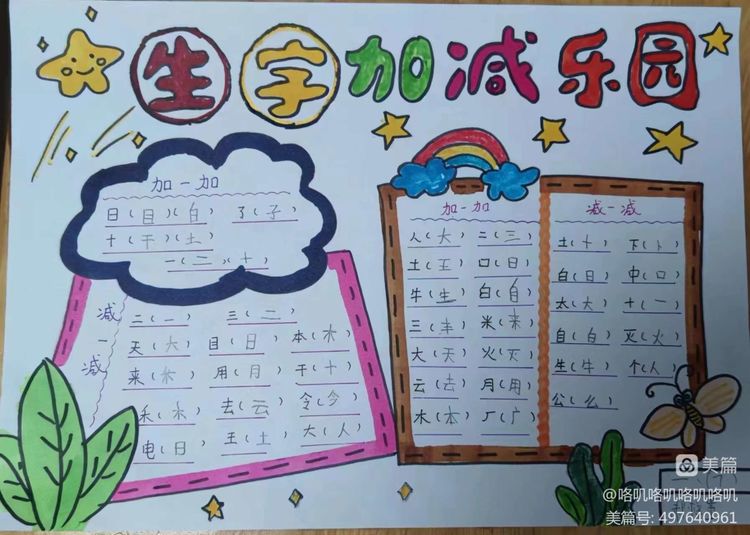 生字加减乐园
加一加
日(目)(白) 了(子)
十(干)(土)
一(二)(十)
减一减
二(一) 三(二)
天(大) 目(日) 本(木)
来(米) 用(月) 干(十)
禾(木) 去(云) 令(今)
电(日) 王(土) 大(人)
加一加
人(大) 二(三)
土(王) 口(日)
牛(生) 白(自)
三(丰) 米(来)
大(天) 火(灭)
云(去) 月(用)
木(本) 厂(广)
减一减
土(十) 下(卜)
白(日) 中(口)
太(大) 十(一)
自(白) 灭(火)
生(牛) 个(人)
公(么)
美篇
@咯叽咯叽咯叽咯叽
美篇号: 497640961